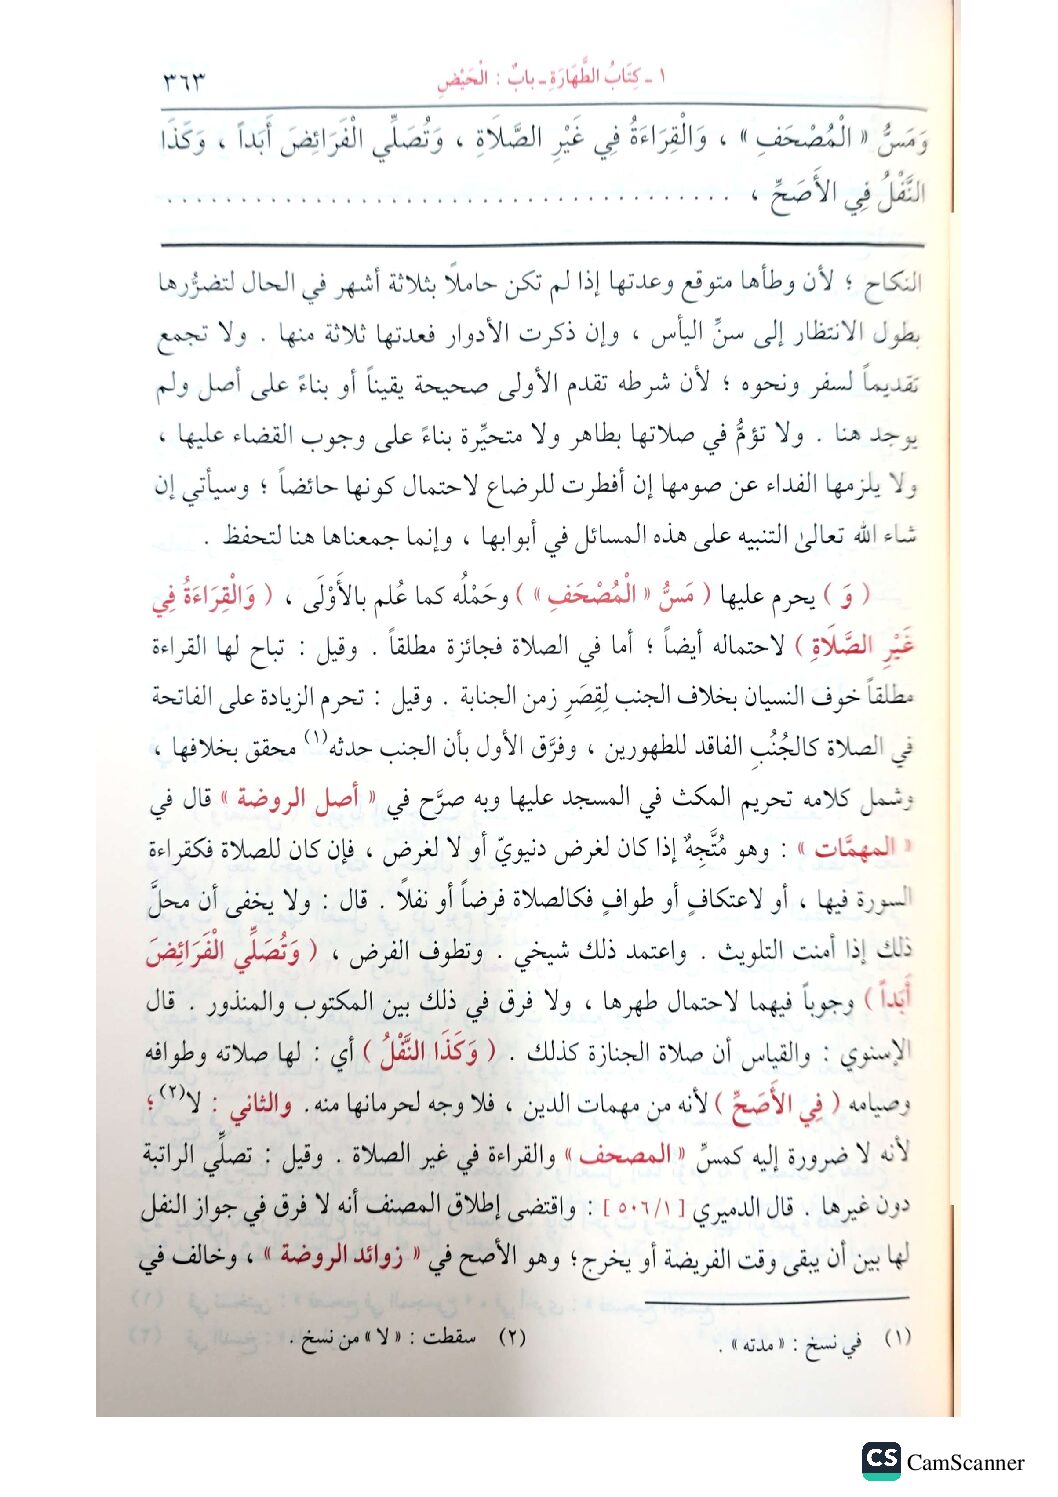 ١ - كِتَابُ الطَّهَارَةِ - بابٌ : الْحَيْضِ ٣٦٣
وَمَسُّ « الْمُصْحَفِ » ، وَالْقِرَاءَةُ فِي غَيْرِ الصَّلَاةِ ، وَتُصَلِّي الْفَرَائِضَ أَبَداً ، وَكَذَا
النَّفْلُ فِي الأَصَحِّ ، . . . . . . . . . . . . . . . . . . . . . . . . . . . . . . . . . . . . . . .
النكاح ؛ لأن وطأها متوقع وعدتها إذا لم تكن حاملاً بثلاثة أشهر في الحال لتضرُّرها
بطول الانتظار إلى سنِّ اليأس ، وإن ذكرت الأدوار فعدتها ثلاثة منها . ولا تجمع
تقديماً لسفر ونحوه ؛ لأن شرطه تقدم الأولى صحيحة يقيناً أو بناءً على أصل ولم
يوجد هنا . ولا تؤمُّ في صلاتها بطاهر ولا متحيِّرة بناءً على وجوب القضاء عليها ،
ولا يلزمها الفداء عن صومها إن أفطرت للرضاع لاحتمال كونها حائضاً ؛ وسيأتي إن
شاء الله تعالىٰ التنبيه على هذه المسائل في أبوابها ، وإنما جمعناها هنا لتحفظ .
( وَ ) يحرم عليها ( مَسُّ « الْمُصْحَفِ » ) وحَمْلُه كما عُلم بالأَوْلَى ، ( وَالْقِرَاءَةُ فِي
غَيْرِ الصَّلَاةِ ) لاحتماله أيضاً ؛ أما في الصلاة فجائزة مطلقاً . وقيل : تباح لها القراءة
مطلقاً خوف النسيان بخلاف الجنب لِقِصَرِ زمن الجنابة . وقيل : تحرم الزيادة على الفاتحة
في الصلاة كالجُنُبِ الفاقد للطهورين ، وفرَّق الأول بأن الجنب حدثه(١) محقق بخلافها ،
وشمل كلامه تحريم المكث في المسجد عليها وبه صرَّح في « أصل الروضة » قال في
« المهمَّات » : وهو مُتَّجِهٌ إذا كان لغرض دنيويّ أو لا لغرض ، فإن كان للصلاة فكقراءة
السورة فيها ، أو لاعتكافٍ أو طوافٍ فكالصلاة فرضاً أو نفلاً . قال : ولا يخفى أن محلَّ
ذلك إذا أمنت التلويث . واعتمد ذلك شيخي . وتطوف الفرض ، ( وَتُصَلِّي الْفَرَائِضَ
أَبَداً ) وجوباً فيهما لاحتمال طهرها ، ولا فرق في ذلك بين المكتوب والمنذور . قال
الإسنوي : والقياس أن صلاة الجنازة كذلك . ( وَكَذَا النَّفْلُ ) أي : لها صلاته وطوافه
وصيامه ( فِي الأَصَحِّ ) لأنه من مهمات الدين ، فلا وجه لحرمانها منه . والثاني : لا(٢) ؛
لأنه لا ضرورة إليه كمسِّ « المصحف » والقراءة في غير الصلاة . وقيل : تصلِّي الراتبة
دون غيرها . قال الدميري [ ٥٠٦/١ ] : واقتضى إطلاق المصنف أنه لا فرق في جواز النفل
لها بين أن يبقى وقت الفريضة أو يخرج ؛ وهو الأصح في « زوائد الروضة » ، وخالف في
(١) في نسخ : « مدته » . (٢) سقطت : « لا » من نسخ .
CS CamScanner